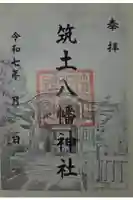 奉拝
筑土八幡神社
令和七年 月 日